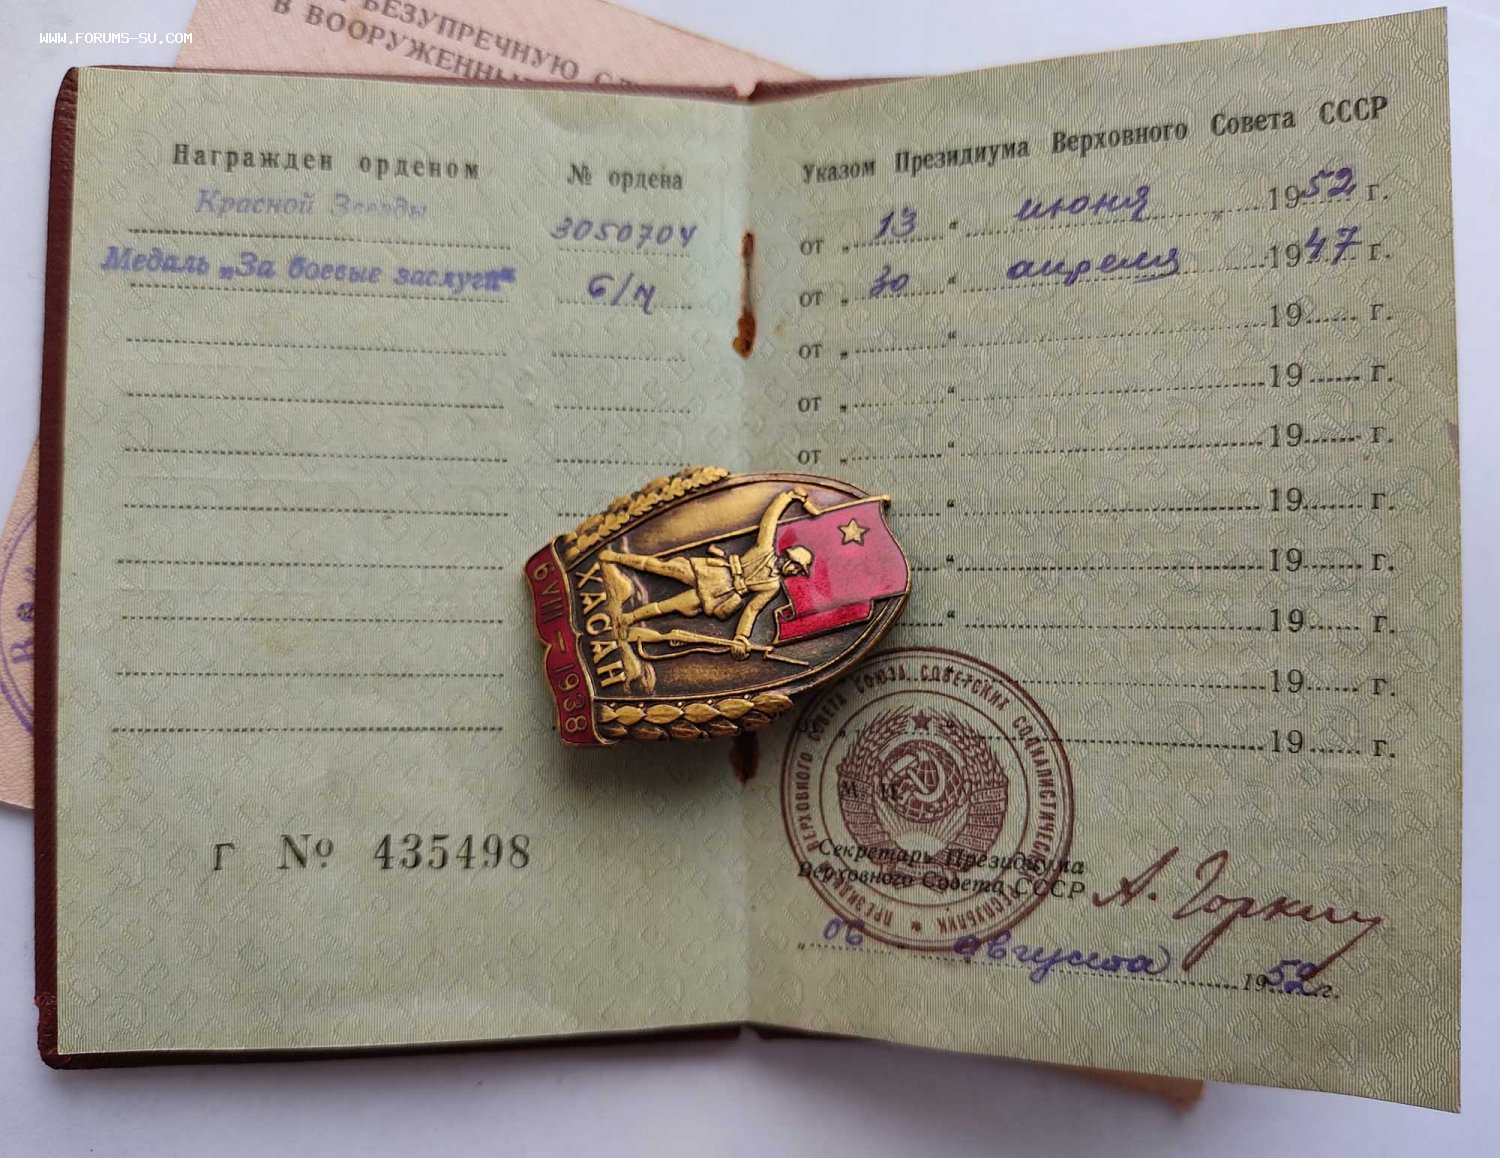 www.forums-su.com
БЕЗУПРЕЧНУЮ
В ВООРУЖЕННЫ
Награжден орденом
№ ордена
Красной Звезды
3050704
Медаль „За боевые заслуги“
б/н
Указом Президиума Верховного Совета СССР
от „ 13 “ июня 1952 г.
от „ 30 “ апреля 1947 г.
от „ “ 19 г.
от „ “ 19 г.
от „ “ 19 г.
“ 19 г.
“ 19 г.
“ 19 г.
19 г.
19 г.
ХАСАН
6 VIII – 1938
Г № 435498
ПРЕЗИДИУМ ВЕРХОВНОГО СОВЕТА СОЮЗА СОВЕТСКИХ СОЦИАЛИСТИЧЕСКИХ РЕСПУБЛИК
М. П.
Секретарь Президиума
Верховного Совета СССР
А. Горкин
„ 06 “ августа 1952 г.